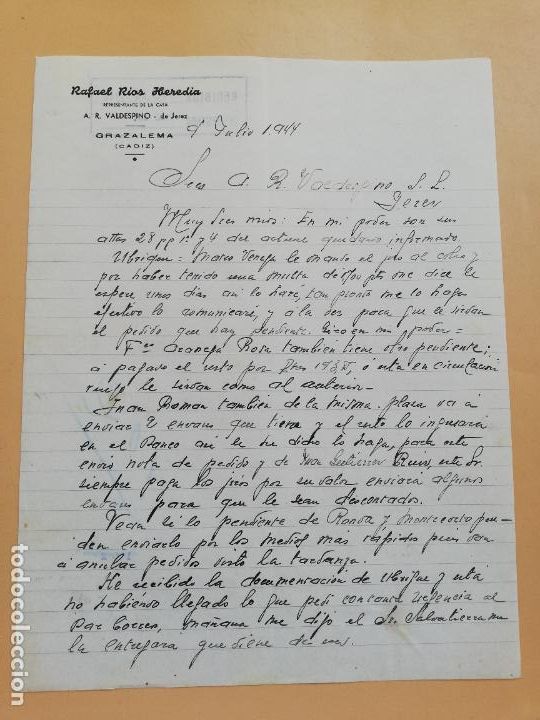 Rafael Rios Heredia
REPRESENTANTE DE LA CASA
A. R. VALDESPINO - de Jerez
GRAZALEMA
(CADIZ)
9 Julio 1.944
Sres A. R. Valdespino, S. L.
Jerez
Muy Sres mios: En mi poder son sus
attas 28 pp 1º y 4 del actual quedando informado
Ubrique = Marco Venega le mando el giro al cobro y
por haber tenido una multa de pts me dice le
espere unos dias asi lo haré, tan pronto me lo haga
efectivo lo comunicaré, y a la vez para que le sirvan
el pedido que hay pendiente. en su poder =
Fco Rosa tambien tiene otro pendiente;
a pagado el resto por Ptas o esta en circulación
ruego le sirvan como al anterior -
Juan Roman tambien de la misma plaza va a
enviar envases que tiene y el resto lo ingresará
en el Banco asi le he dicho lo haga, para este
envio nota de pedido y de Juan Gutierrez Ruiz, este Sr.
siempre paga los giros por su valor enviará algunos
envases para que le sean descontados.
Vean si lo pendiente de Ronda y Montecorto pue-
den enviarlo por los medios mas rápidos pues van
a anular pedidos visto la tardanza.
He recibido la documentación de Ubrique y esta
no habiendo llegado lo que pedi con tanta urgencia al
Par Correo, mañana me dijo el Sr. Salvatierra me
la entregara que viene de esa.
todocoleccion